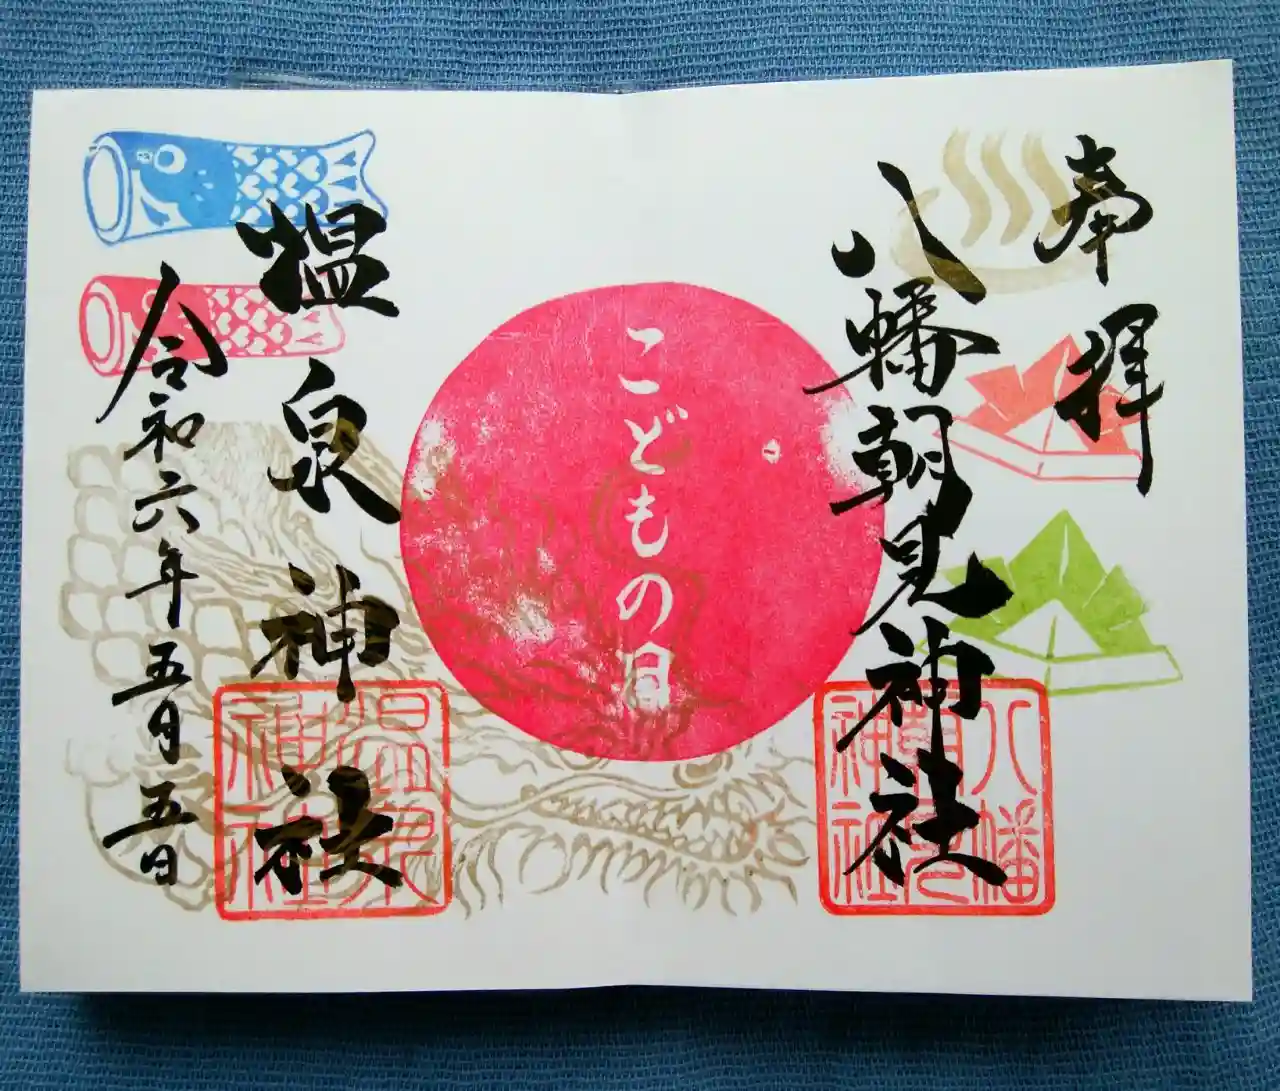 奉拝
八幡朝見神社
八幡朝見神社
こどもの日
温泉神社
温泉神社
令和六年五月五日